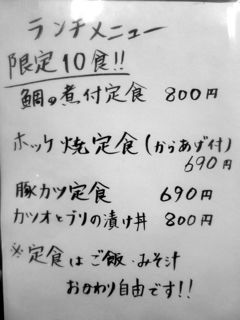 ランチメニュー
限定10食!!
鯛の煮付定食 800円
ホッケ焼定食(からあげ付)
690円
豚カツ定食 690円
カツオとブリの漬け丼 800円
※定食はご飯・みそ汁
おかわり自由です!!